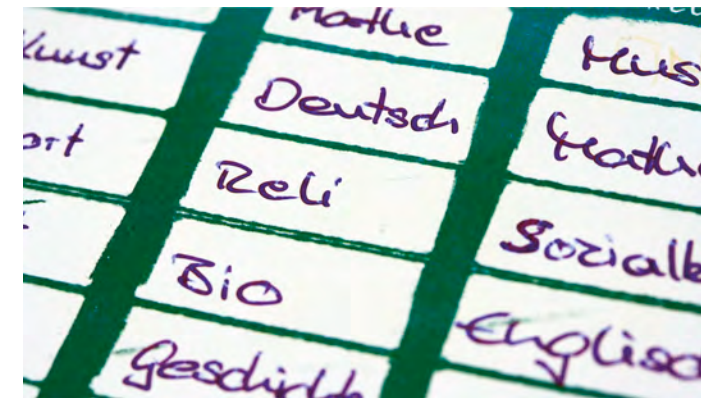 Kunst
ort
Mathe
Deutsch
Reli
Bio
Geschicht
Mus
Mathe
Sozialk
Englisc